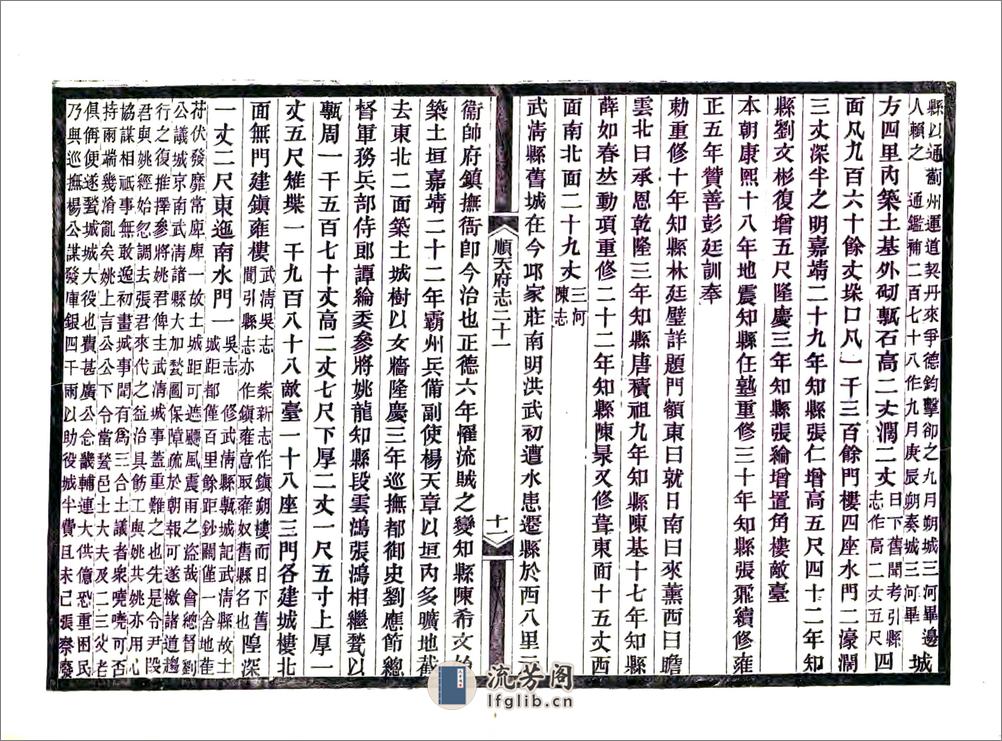 縣以通薊州運道契丹來爭德鈞擊卻之九月朔城三河畢邊
人賴之 通鑑補二百七十八作九月庚辰朔奏城三河畢
城
方四里內築土基外砌甎石高二丈濶二丈
日下舊聞考引縣
志作高二丈五尺
四
面凡九百六十餘丈垛口凡一千三百餘門樓四座水門二濠濶
三丈深半之明嘉靖二十九年知縣張仁增高五尺四十二年知
縣劉文彬復增五尺隆慶三年知縣張綸增置角樓敵臺
本朝康熙十八年地震知縣任塾重修三十年知縣張飛續修雍
正五年贊善彭廷訓奉
勅重修十年知縣林廷璧詳題門額東曰就日南曰來薰西曰瞻
雲北曰承恩乾隆三年知縣唐積祖九年知縣陳基十七年知縣
薛如春動項重修二十二年知縣陳又修葺東面十五丈西
面南北面二十九丈
三河
陳志
武清縣舊城在今邱家莊南明洪武初遭水患遷縣於西八里
順天府志二十一
十一
衞帥府鎮撫衙卽今治也正德六年罹流賊之變知縣陳希文始
築土垣嘉靖二十二年霸州兵備副使楊天章以垣內多曠地截
去東北二面築土城樹以女牆隆慶三年巡撫都御史劉應節總
督軍務兵部侍郎譚綸委參將姚龍知縣段雲鴻張鴻相繼甃以
甎周一千五百七十丈高二丈七尺下厚二丈一尺五寸上厚一
丈五尺雉堞一千九百八十八敵臺一十八座三門各建城樓北
面無門建鎮雍樓
武清吳志 案新志作鎮朔樓而日下舊
聞引縣志亦作鎮雍意取雍奴舊縣名也
隍深
一丈二尺東迤南水門一
吳志 修武清縣甎城記武清縣故土
城距都僅百里餘距鈔關僅一舍地萑
苻伏發靡常一故土城距可遮聽風震雨之盜哉會總督劉
公議城京南武清諸縣大加甃圖保障疏於朝報可遂檄諸道趨
行之復推擇參將姚君俾主武清城事蓋重難之也先是令尹段
君與姚經始忽調去張君來代之益治具飭工與姚共姚亦用心
協謀相祇事無敢逸初畫城事間有爲三合土議者衆嘵嘵可否
持兩端幾淆亂矣姚上言公公下令當甃邑士大夫及二三父老
俱便遂甃城城大役也費甚廣公念畿輔連大供億恐重困民
乃與巡撫楊公謀發庫銀四千兩以助役城半費且未已張察廢
流芳阁
lfglib.cn